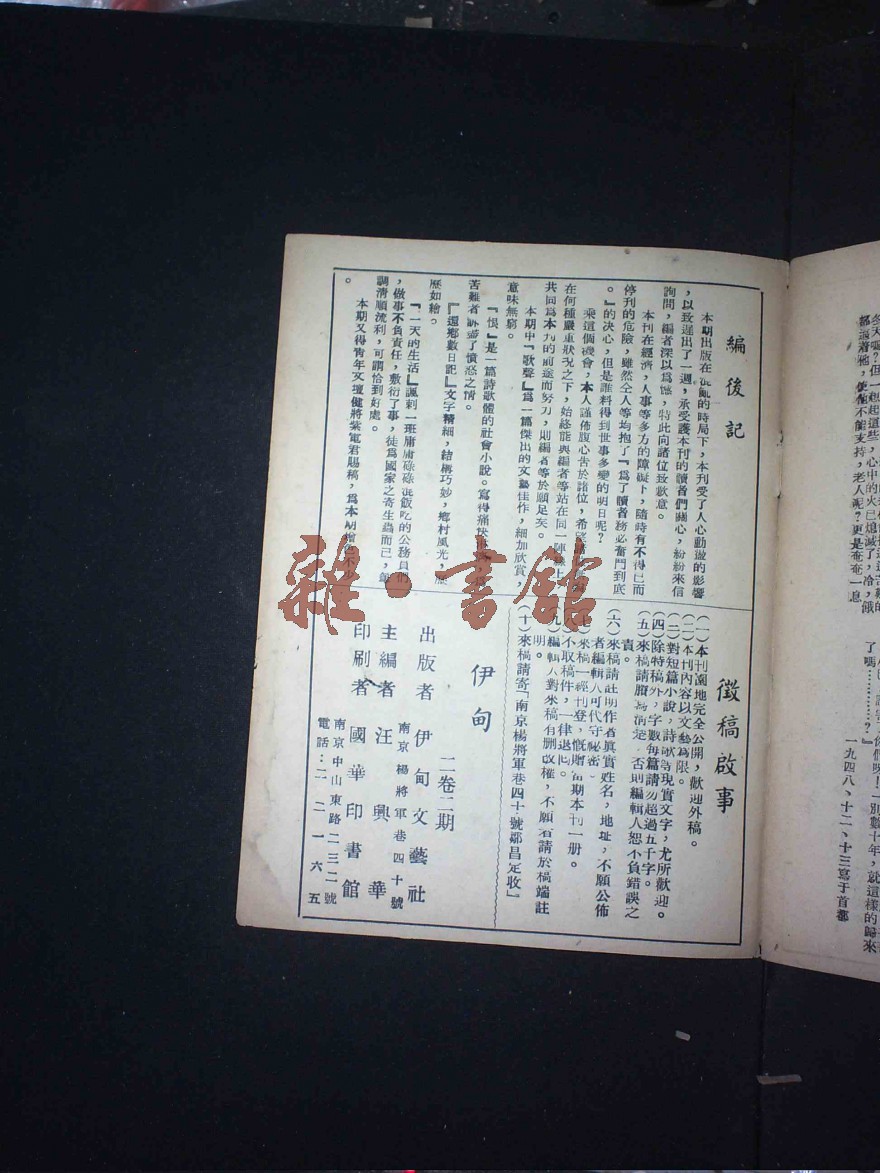 冬天嗎?但一想起這些,心中的火已熄滅了,冷,餓
老人呢?更是奄奄一息
了嗎…………?』
一九四八、十二、十三寫于首都
編後記
本期出版在混亂的時局下,本刊受了人心動盪的影響
,以致遲出了一週,承受護本刊的讀者們關心,紛紛來信
詢問,編者深以爲憾,特此向諸位致歉意。
本刊在經濟,人事等多方的障礙下,隨時有不得已而
停刊的危險,雖然全人等均抱了『爲了讀者務必奮鬥到底
。』的決心,但是誰料得到世事多變的明日呢?
乘這個機會,本人謹佈腹心告於諸位,希望
在何種嚴重狀況之下,始終能與編者等站在同一陣線上,
共同爲本刊的前途而努力,則編者等於願足矣。
本期中『歌聲』爲一篇傑出的文藝佳作,細加欣賞,
意味無窮。
『恨』是一篇詩歌體的社會小說。寫得痛快
苦難者訴盡了憤怒之情。
『還鄉數日記』文字精細,結構巧妙,鄉村風光,歷
歷如繪。
『一天的生活』諷刺一班庸庸碌碌混飯吃的公務員們
,做事不負責任,敷衍了事,徒爲國家之寄生蟲而已,筆
調清順流利,可謂恰到好處。
本期又得青年文壇健將紫電君賜稿,爲本期增色不少
。
徵稿啟事
(一)本刊園地完全公開,歡迎外稿。
(二)本刊內容以文藝爲限。
(三)對短篇小說,詩歌等現實文字,尤所歡迎。
(四)除特稿外,字數每篇請勿超過五千字。
(五)來稿請謄寫清楚,否則編輯人恕不負錯誤之
責。
(六)來稿請註明作者眞實姓名,地址,不願公佈
者編輯人可代守祕密。
(七)來稿一經刊登,慨贈當期本刊一册。
(八)不取稿件,一律退回。
(九)編輯人對來稿有删改權,不願者請於稿端註
明。
(十)來稿請寄『南京楊將軍巷四十號鄒昌定收』
伊甸
二卷二期
出版者 伊甸文藝社
南京楊將軍巷四十號
主編者 汪興華
印刷者 國華印書館
南京中山東路二三二號
電話:二二一六五
雜·書館